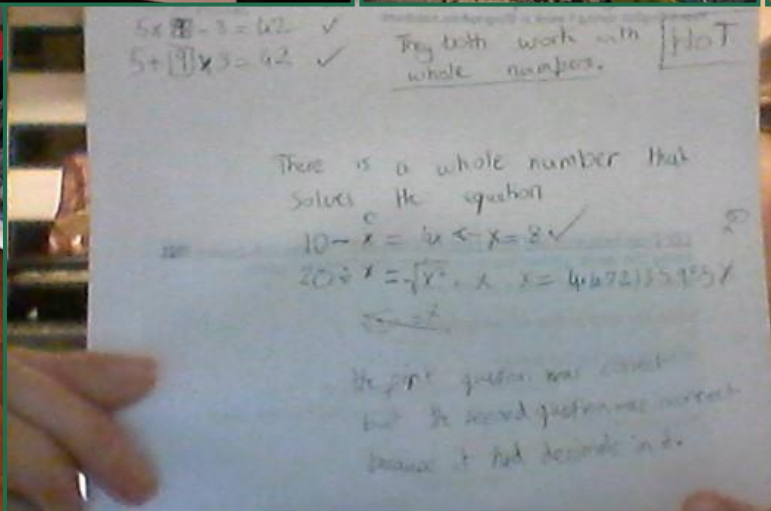 5x 9 - 3 = 42 ✓
5 + 9 x 3 = 42 ✓
They both work with
whole numbers.
HOT
There is a whole number that
solves the equation
10 - x = x = 8 ✓
20 ÷ x = √x² x = 4.472135955 X
the first question was correct
but the second question was incorrect
because it had decimals in it.